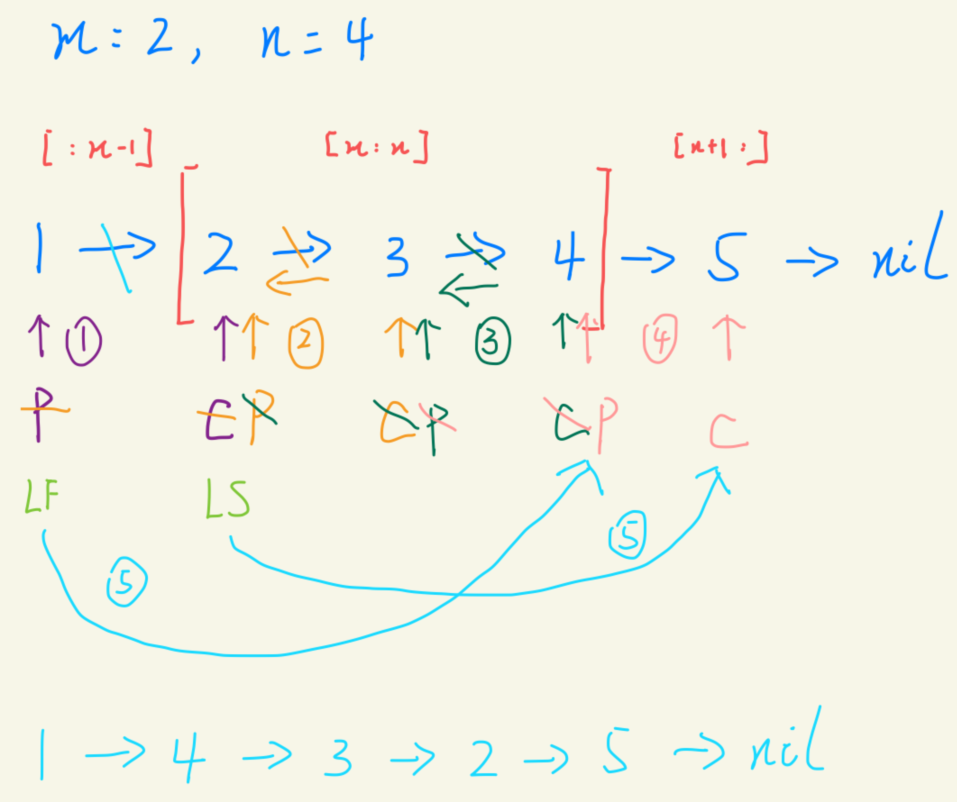 m = 2, n = 4
[ : m-1] [m : n] [n+1 : ]
1 → [ 2 → 3 → 4 ] → 5 → nil
← ←
↑ ① ↑ ↑ ② ↑ ↑ ③ ↑ ↑ ④ ↑
P C P C P C P C
LF LS
⑤ ⑤
1 → 4 → 3 → 2 → 5 → nil